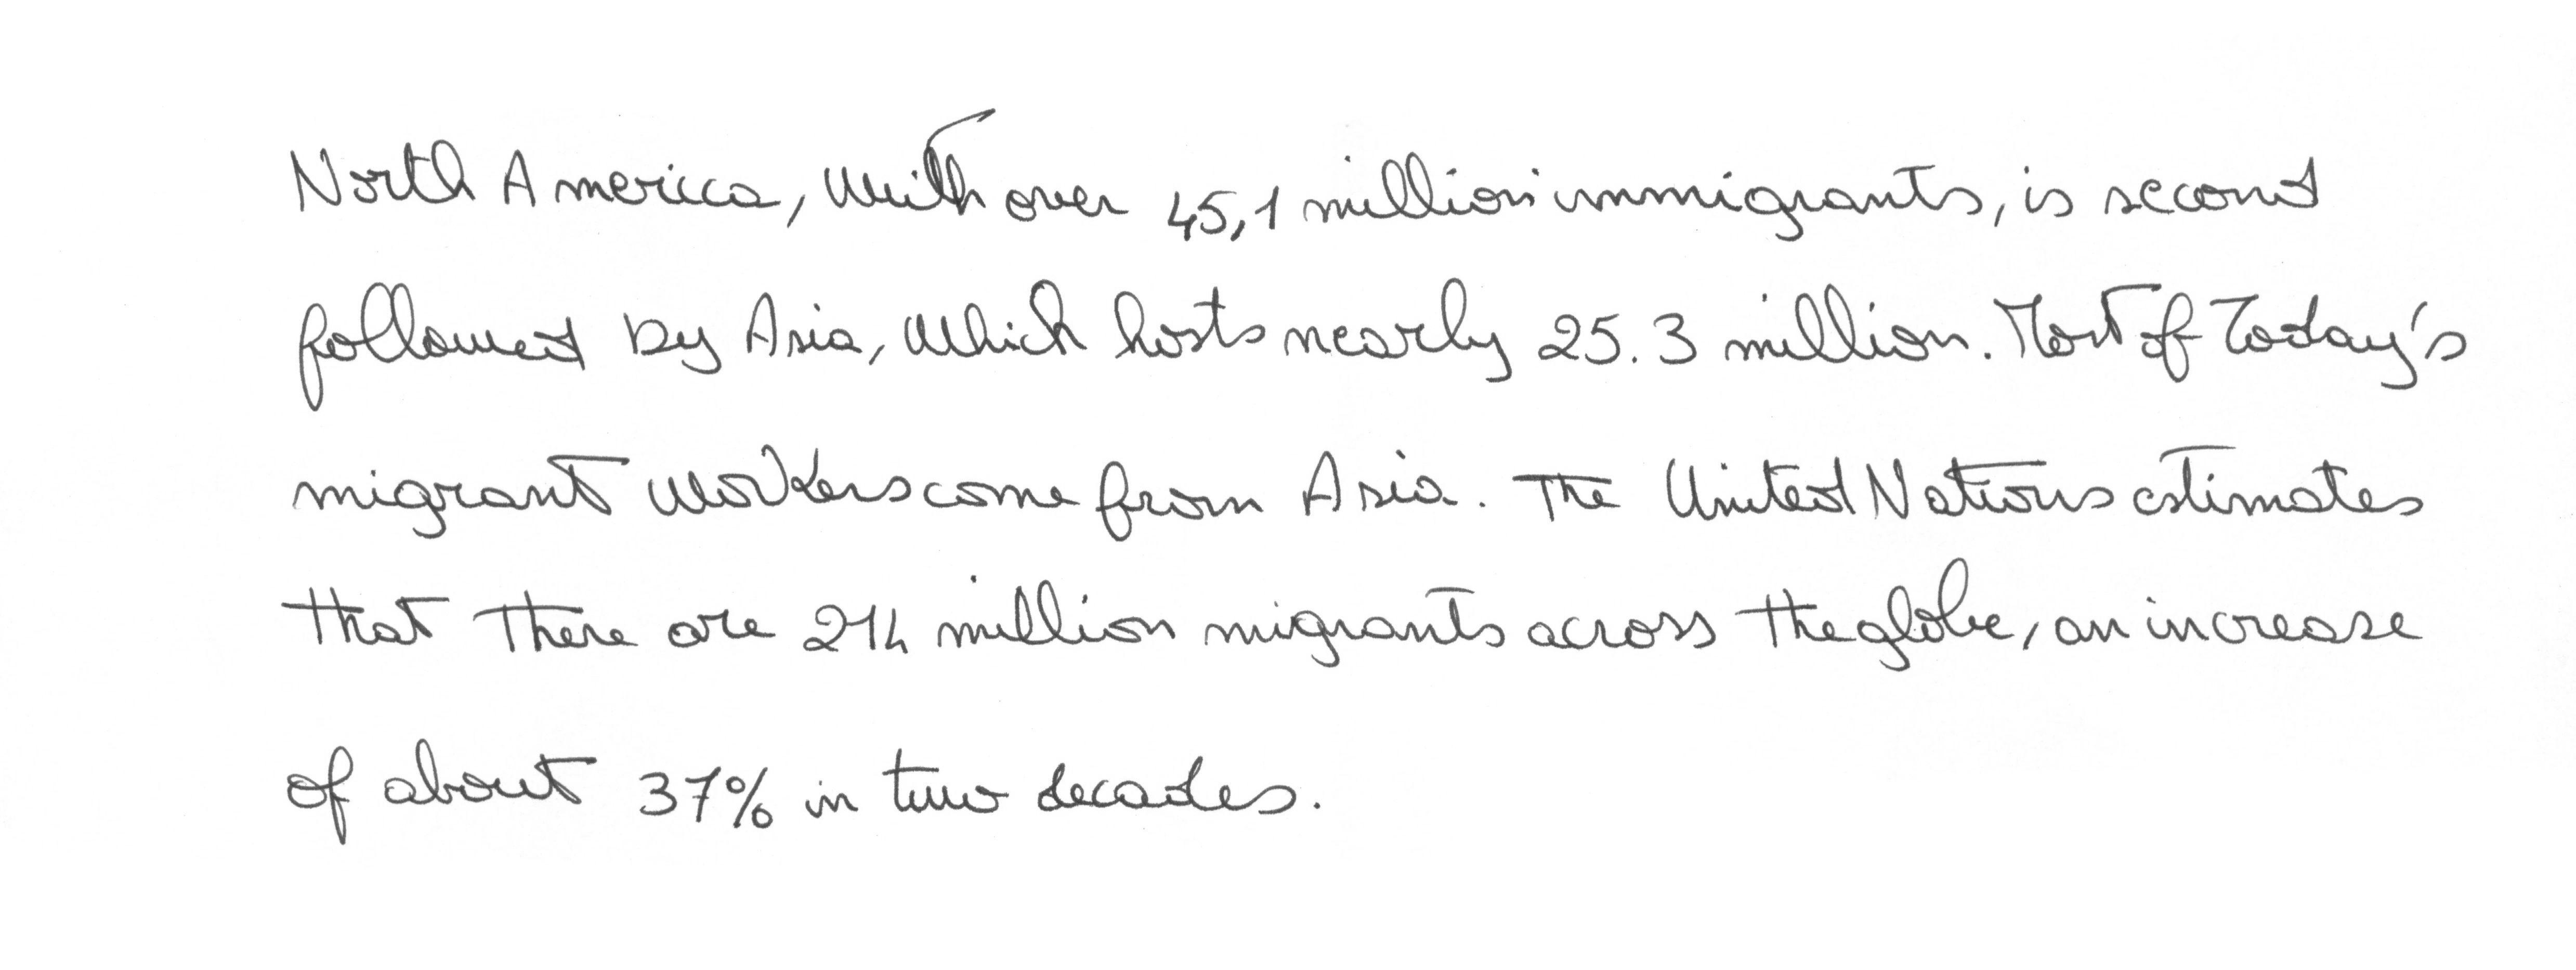 North America, with over 45,1 million immigrants, is second
followed by Asia, which hosts nearly 25.3 million. Most of Today's
migrant workers come from Asia. The United Nations estimates
that there are 214 million migrants across the globe, an increase
of about 37% in two decades.